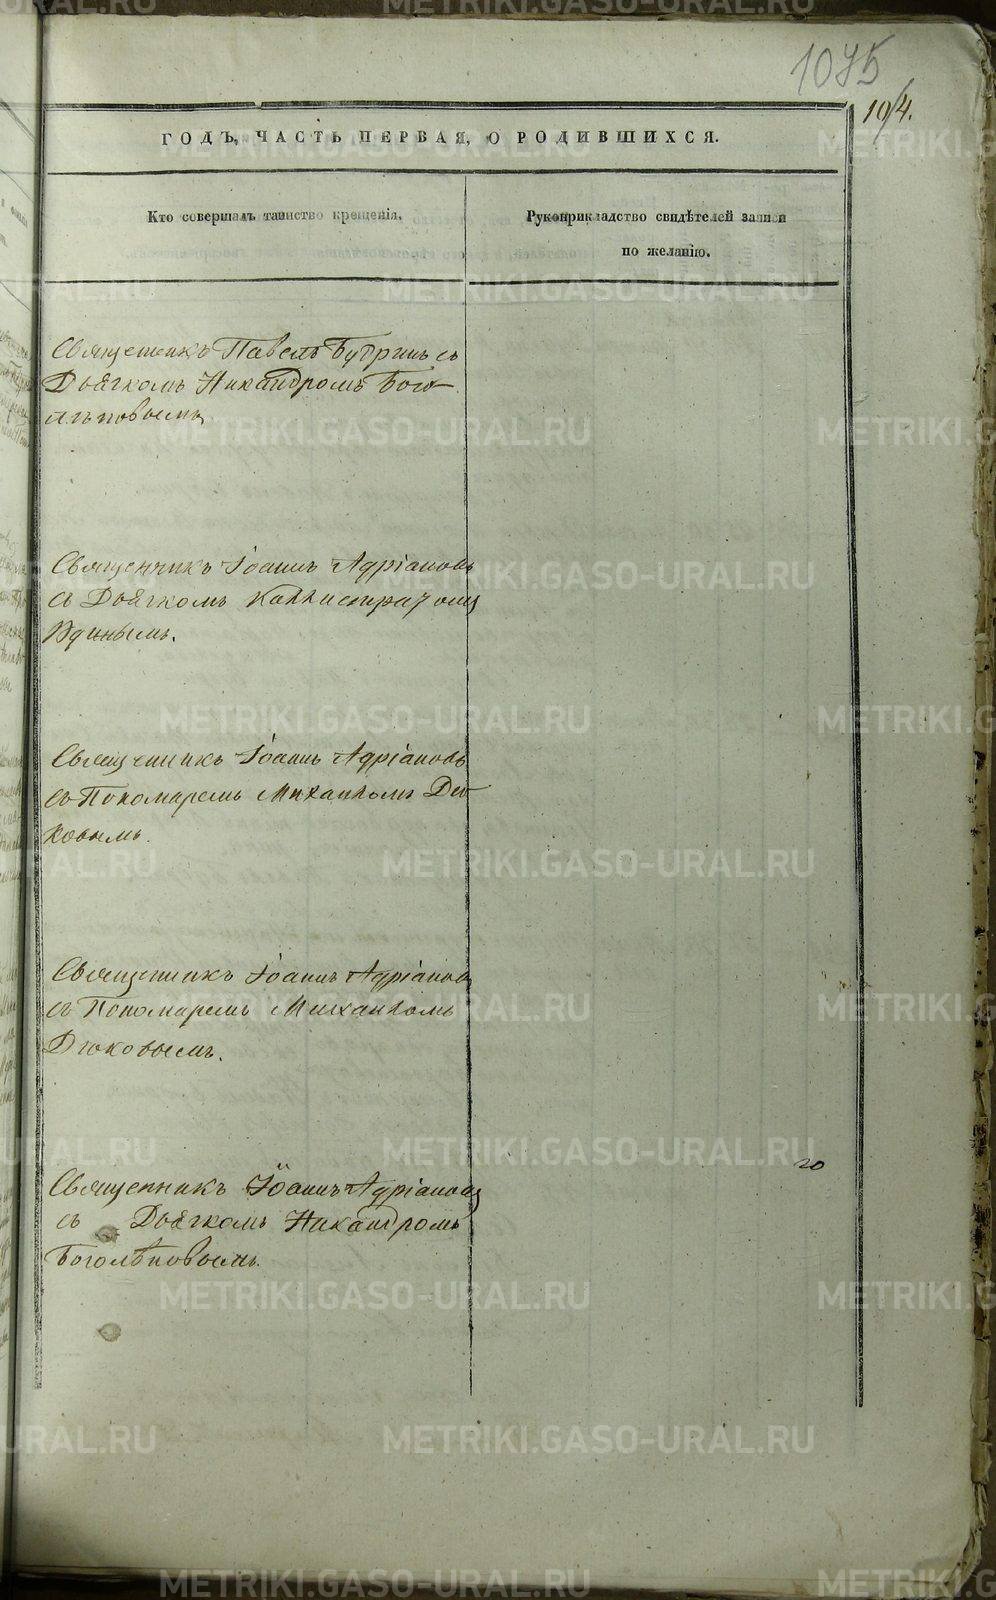 1075
104.
ГОДЪ, ЧАСТЬ ПЕРВАЯ, О РОДИВШИХСЯ.
Кто совершалъ таинство крещенія.
Рукоприкладство свидѣтелей записи
по желанію.
Священникъ Павелъ Будринъ съ
Дьячкомъ Никандромъ Бого-
лѣповымъ
Священникъ Іоаннъ Адріановъ
съ Дьячкомъ Каллистратомъ
Священникъ Іоаннъ Адріановъ
съ Пономаремъ Михаиломъ Дю-
ковымъ.
Священникъ Іоаннъ Адріановъ
съ Пономаремъ Михаиломъ
Дюковымъ.
Священникъ Іоаннъ Адріановъ
съ Дьячкомъ Никандромъ
Боголѣповымъ.
METRIKI.GASO-URAL.RU